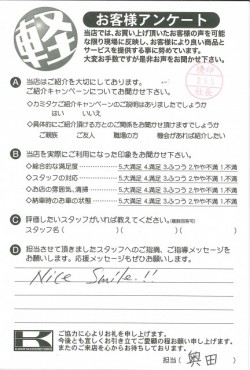 軽
お客様アンケート
当店では、お買い上げ頂いたお客様の声を可能
な限り現場に反映し、お客様により良い商品と
サービスを提供する事に努めています。
大変お手数ですが是非お声をお聞かせ下さい。
A 当店はご紹介を大切にしております。
ご紹介キャンペーンについてお聞かせ下さい。
◇カミタケご紹介キャンペーンのご説明はありましたでしょうか
はい いいえ
◇具体的にご紹介頂ける方とのご関係をお聞かせ頂けますでしょうか
ご親族 ご友人 職場の方 機会があれば紹介したい
B 当店を実際にご利用になった印象をお聞かせ下さい。
◇総合的な満足度 5.大満足 4.満足 3.ふつう 2.やや不満 1.不満
◇スタッフの対応 5.大満足 4.満足 3.ふつう 2.やや不満 1.不満
◇お店の雰囲気、清掃 5.大満足 4.満足 3.ふつう 2.やや不満 1.不満
◇納車時のお車の状態 5.大満足 4.満足 3.ふつう 2.やや不満 1.不満
C 評価したいスタッフがいれば教えてください。(複数回答可)
スタッフ名( )( )( )
D 担当させて頂きましたスタッフへのご指摘、ご指導メッセージを
お願いします。応援メッセージもぜひお願いします。
Nice Smile.!!
K
ご協力に心よりお礼を申し上げます。
今後とも宜しくお引き立てご愛顧の程お願い申し上げます。
またのご来店を心からお待ちしております。
担当( 奥田 )